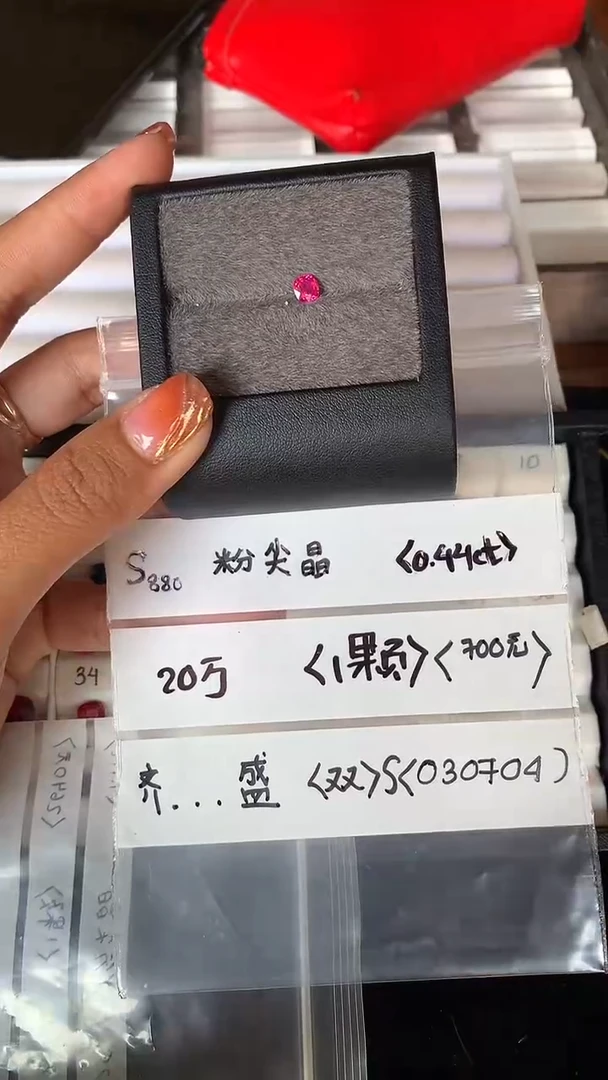 10
S880 粉尖晶 <0.44ct>
20万 <1颗><700元>
34
齐...盛 <双>S<030704)